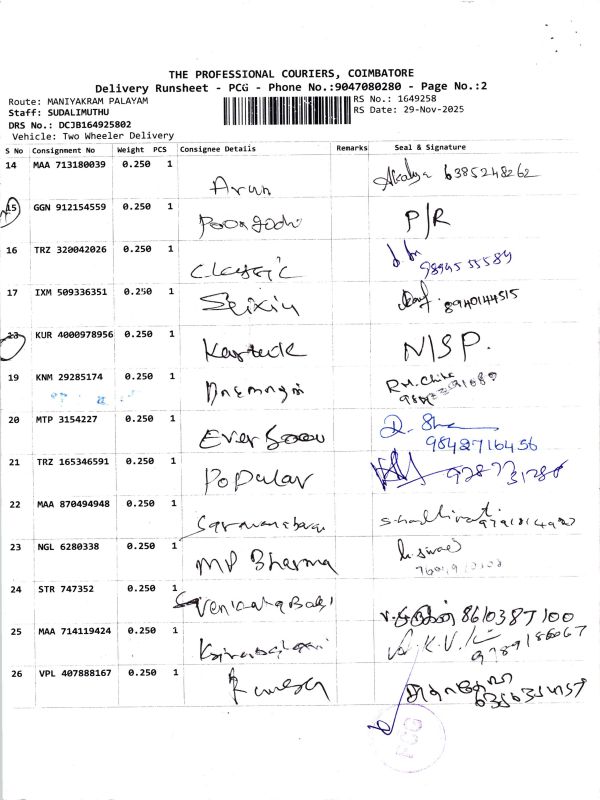 THE PROFESSIONAL COURIERS, COIMBATORE
Delivery Runsheet - PCG - Phone No.:9047080280 - Page No.:2
Route: MANIYAKRAM PALAYAM
RS No.: 1649258
Staff: SUDALIMUTHU
RS Date: 29-Nov-2025
DRS No.: DCJB164925802
Vehicle: Two Wheeler Delivery
S No Consignment No Weight PCS Consignee Details Remarks Seal & Signature
14 MAA 713180039 0.250 1 Arun 6385248262
15 GGN 912154559 0.250 1 Poongodi P/R
16 TRZ 320042026 0.250 1 Classic 9894555584
17 IXM 509336351 0.250 1 8940144515
KUR 4000978956 0.250 1 Karteek N/SP.
19 KNM 29285174 0.250 1
20 MTP 3154227 0.250 1 Ever 9842716456
21 TRZ 165346591 0.250 1 Popular
22 MAA 870494948 0.250 1
23 NGL 6280338 0.250 1 MP Bherma
24 STR 747352 0.250 1 8610387100
25 MAA 714119424 0.250 1 K.V. 9789186067
26 VPL 407888167 0.250 1
PCG